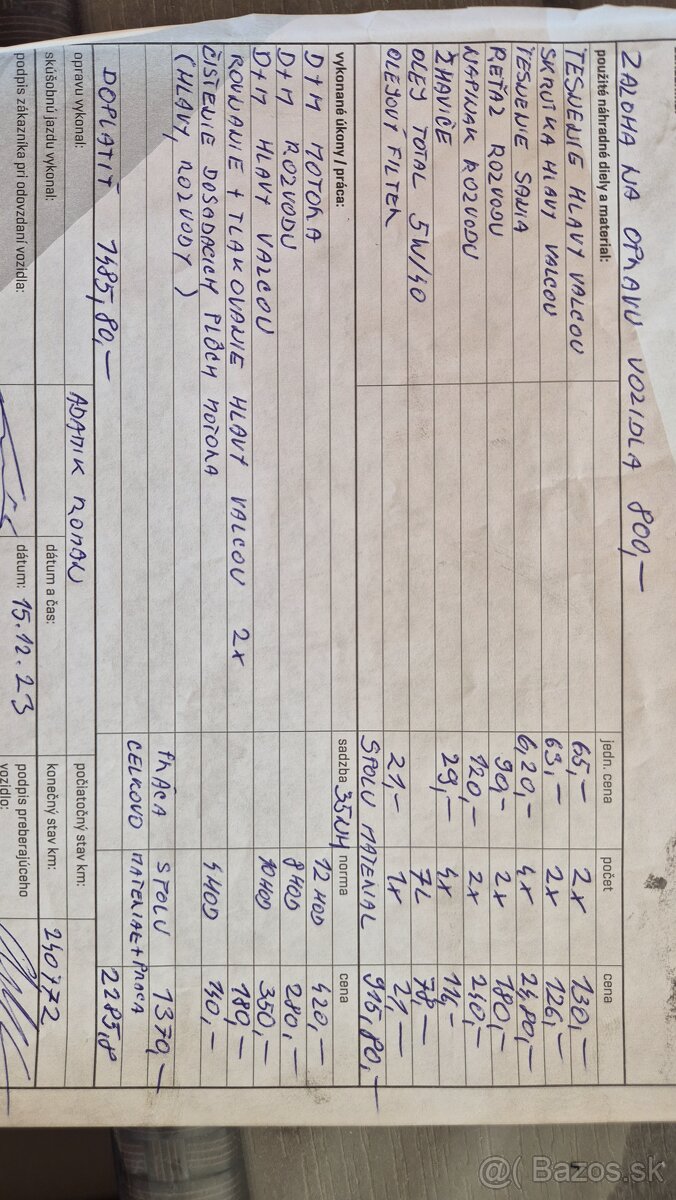 ZÁLOHA NA OPRAVU VOZIDLA 800,—
použité náhradné diely a material: jedn. cena počet cena
TESNENIE HLAVY VALCOV 65,— 2x 130,—
SKRUTKA HLAVY VALCOV 63,— 2x 126,—
TESNENIE SANIA 6,20,— 4x 24,80,—
REŤAZ ROZVODU 90,— 2x 180,—
NAPINAK ROZVODU 120,— 2x 240,—
ŽHAVIČE 29,— 4x 116,—
OLEJ TOTAL 5W/40 7L 78,—
OLEJOVÝ FILTER 21,— 1x 21,—
SPOLU MATERIAL 915,80,—
vykonané úkony / práca: sadzba 35NH norma cena
D+M MOTORA 12 HOD 420,—
D+M ROZVODU 8HOD 280,—
D+M HLAVY VALCOV 10HOD 350,—
ROVNANIE + TLAKOVANIE HLAVY VALCOV 2x 180,—
ČISTENIE DOSADACICH PLÔCH MOTORA 4HOD 140,—
(HLAVY, ROZVODY)
PRÁCA SPOLU 1370,—
CELKOVO MATERIAL + PRÁCA
DOPLATIŤ 1485,80,— 2285,8
opravu vykonal: ADAMIK ROMAN počiatočný stav km:
skúšobnú jazdu vykonal: dátum a čas: konečný stav km: 240772
podpis zákazníka pri odovzdaní vozidla: dátum: 15.12.23 podpis preberajúceho
vozidlo:
@( Bazos.sk